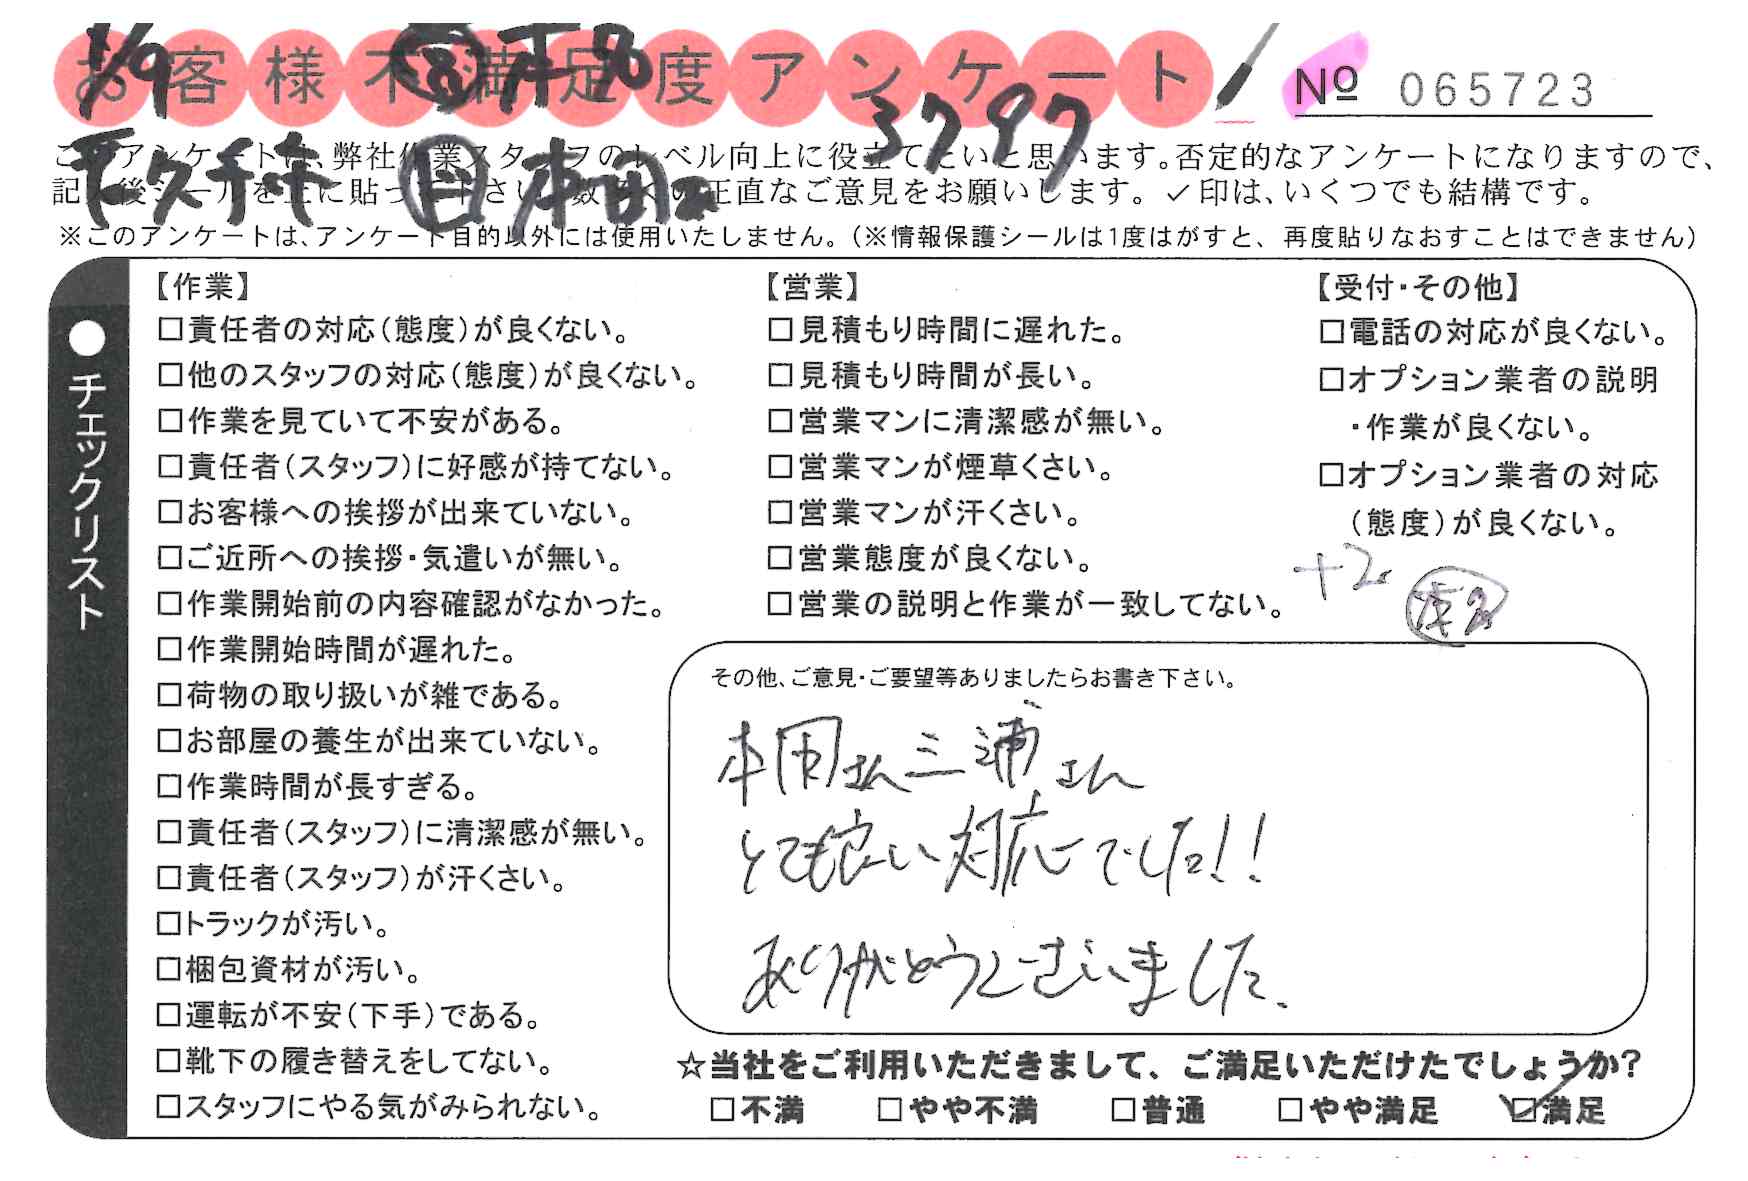 お客様不満足度アンケート
1/9
3797
№ 065723
このアンケートは、弊社作業スタッフのレベル向上に役立てたいと思います。否定的なアンケートになりますので、
記入後シールを上に貼って下さい。数多くの正直なご意見をお願いします。✓印は、いくつでも結構です。
※このアンケートは、アンケート目的以外には使用いたしません。(※情報保護シールは1度はがすと、再度貼りなおすことはできません)
●チェックリスト
【作業】
□責任者の対応(態度)が良くない。
□他のスタッフの対応(態度)が良くない。
□作業を見ていて不安がある。
□責任者(スタッフ)に好感が持てない。
□お客様への挨拶が出来ていない。
□ご近所への挨拶・気遣いが無い。
□作業開始前の内容確認がなかった。
□作業開始時間が遅れた。
□荷物の取り扱いが雑である。
□お部屋の養生が出来ていない。
□作業時間が長すぎる。
□責任者(スタッフ)に清潔感が無い。
□責任者(スタッフ)が汗くさい。
□トラックが汚い。
□梱包資材が汚い。
□運転が不安(下手)である。
□靴下の履き替えをしてない。
□スタッフにやる気がみられない。
【営業】
□見積もり時間に遅れた。
□見積もり時間が長い。
□営業マンに清潔感が無い。
□営業マンが煙草くさい。
□営業マンが汗くさい。
□営業態度が良くない。
□営業の説明と作業が一致してない。
【受付・その他】
□電話の対応が良くない。
□オプション業者の説明
・作業が良くない。
□オプション業者の対応
(態度)が良くない。
+2
その他、ご意見・ご要望等ありましたらお書き下さい。
本間さん三浦さん
とても良い対応でした!!
ありがとうございました。
☆当社をご利用いただきまして、ご満足いただけたでしょうか?
□不満 □やや不満 □普通 □やや満足 ☑満足